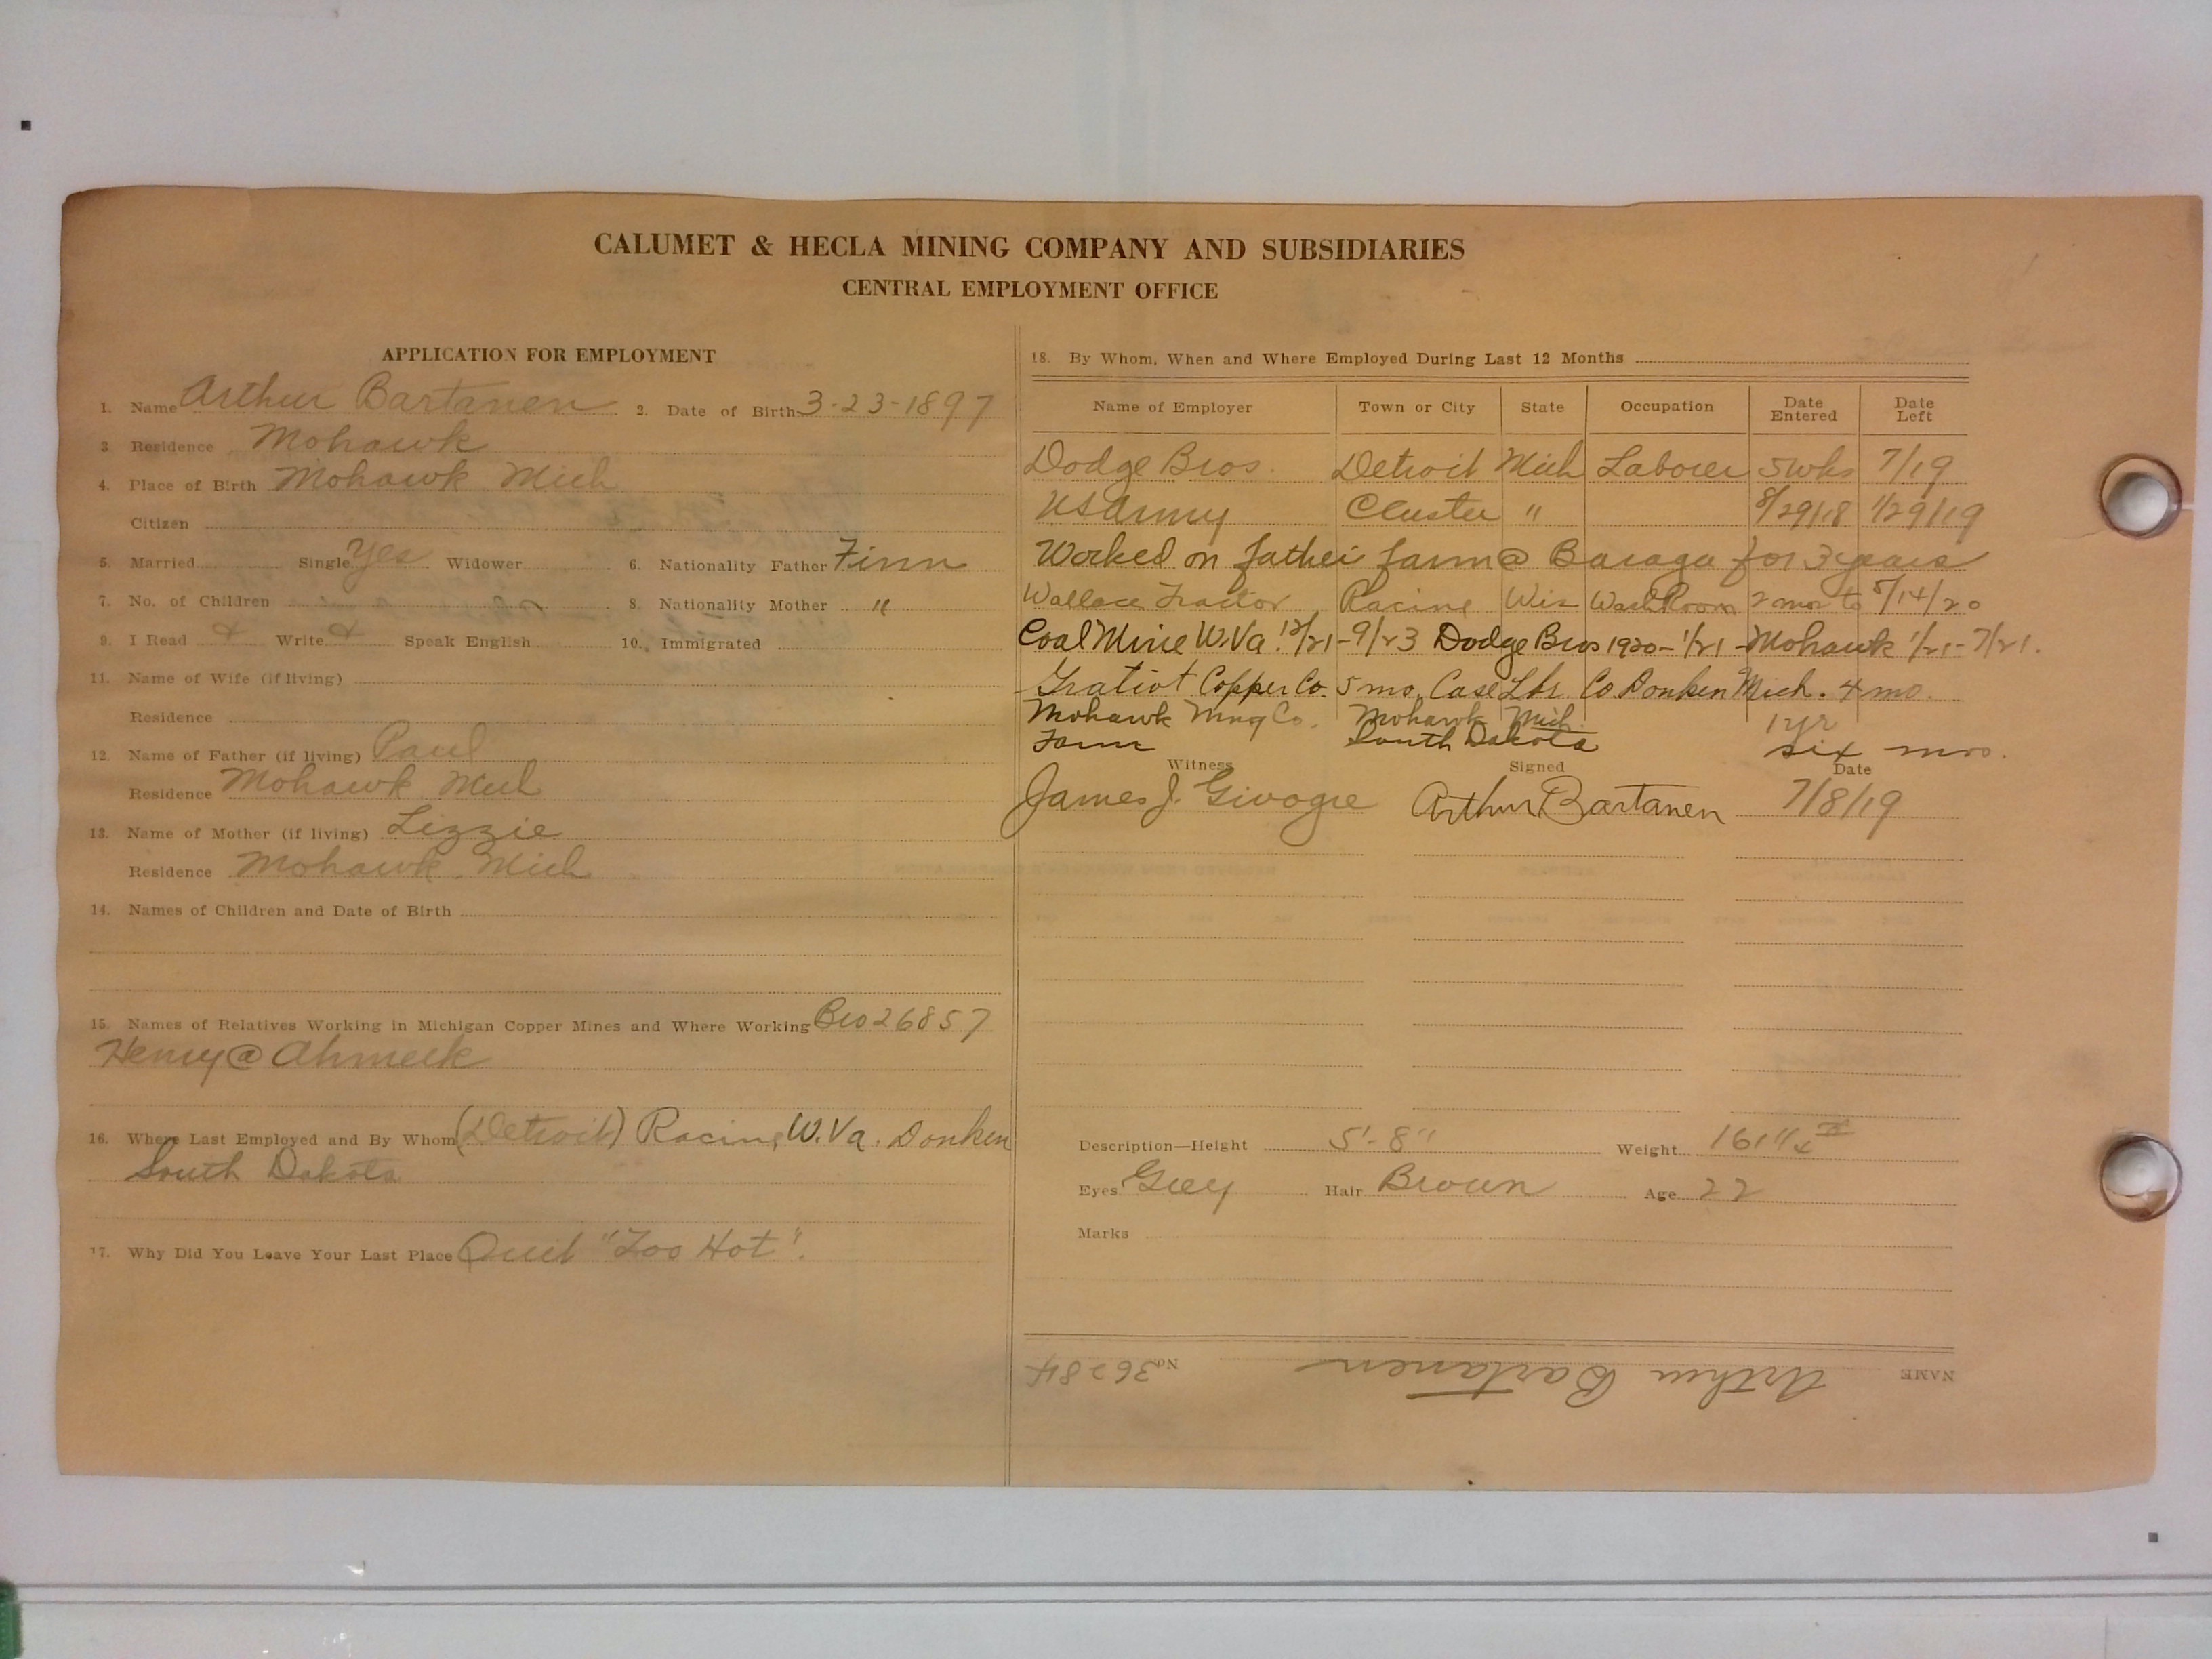 CALUMET & HECLA MINING COMPANY AND SUBSIDIARIES
CENTRAL EMPLOYMENT OFFICE
APPLICATION FOR EMPLOYMENT
1. Name Arthur Bartanen 2. Date of Birth 3-23-1897
3 Residence Mohawk
4. Place of Birth Mohawk Mich
Citizen
5. Married Single Yes Widower 6. Nationality Father Finn
7. No. of Children 8. Nationality Mother "
9. I Read Write Speak English 10. Immigrated
11. Name of Wife (if living)
Residence
12. Name of Father (if living) Paul
Residence Mohawk Mich
13. Name of Mother (if living) Lizzie
Residence Mohawk Mich
14. Names of Children and Date of Birth
15. Names of Relatives Working in Michigan Copper Mines and Where Working Bro 26857
Henry @ Ahmeek
16. Where Last Employed and By Whom (Detroit) Racine, W.Va. Donken
South Dakota
17. Why Did You Leave Your Last Place Quit "Too Hot".
18. By Whom, When and Where Employed During Last 12 Months
Name of Employer Town or City State Occupation Date Entered Date Left
Dodge Bros. Detroit Mich Laborer 5 wks 7/19
US Army Custer " 8/29/18 1/29/19
Worked on father farm @ Baraga for 3 years
Wallace Tractor Racine Wis Wash Room 2 mos to 5/14/20
Coal Mine W.Va. 12/21-9/23 Dodge Bros 1920-1/21 - Mohawk 1/21-7/21.
Gratiot Copper Co. 5 mo. Case Lbr Co Donken Mich. 4 mo.
Mohawk Mng Co. Mohawk Mich. 1 yr
Farm South Dakota six mos.
Witness Signed Date
James J. Givogre Arthur Bartanen 7/8/19
Description—Height 5'-8" Weight 161
Eyes Grey Hair Brown Age 22
Marks
NAME Arthur Bartanen No. 36284